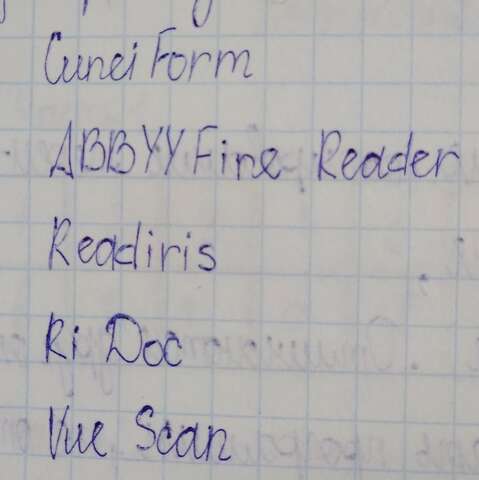 Cunei Form
ABBYY Fine Reader
Readiris
Ri Doc
Vue Scan